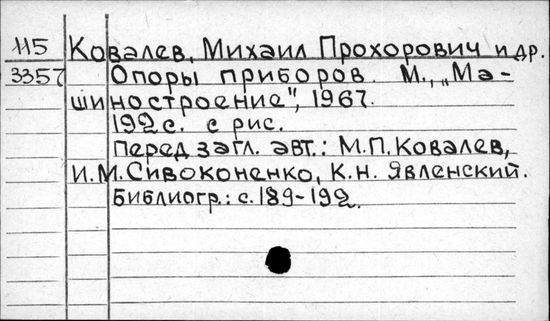 115 Ковалев, Михаил Прохорович и др.
3357 Опоры приборов. М., „Ма-
шиностроение", 1967.
192 с. с рис.
Перед загл. авт.: М.П. Ковалев,
И.М. Сивоконенко, К.Н. Явленский.
Библиогр.: с. 189-192.